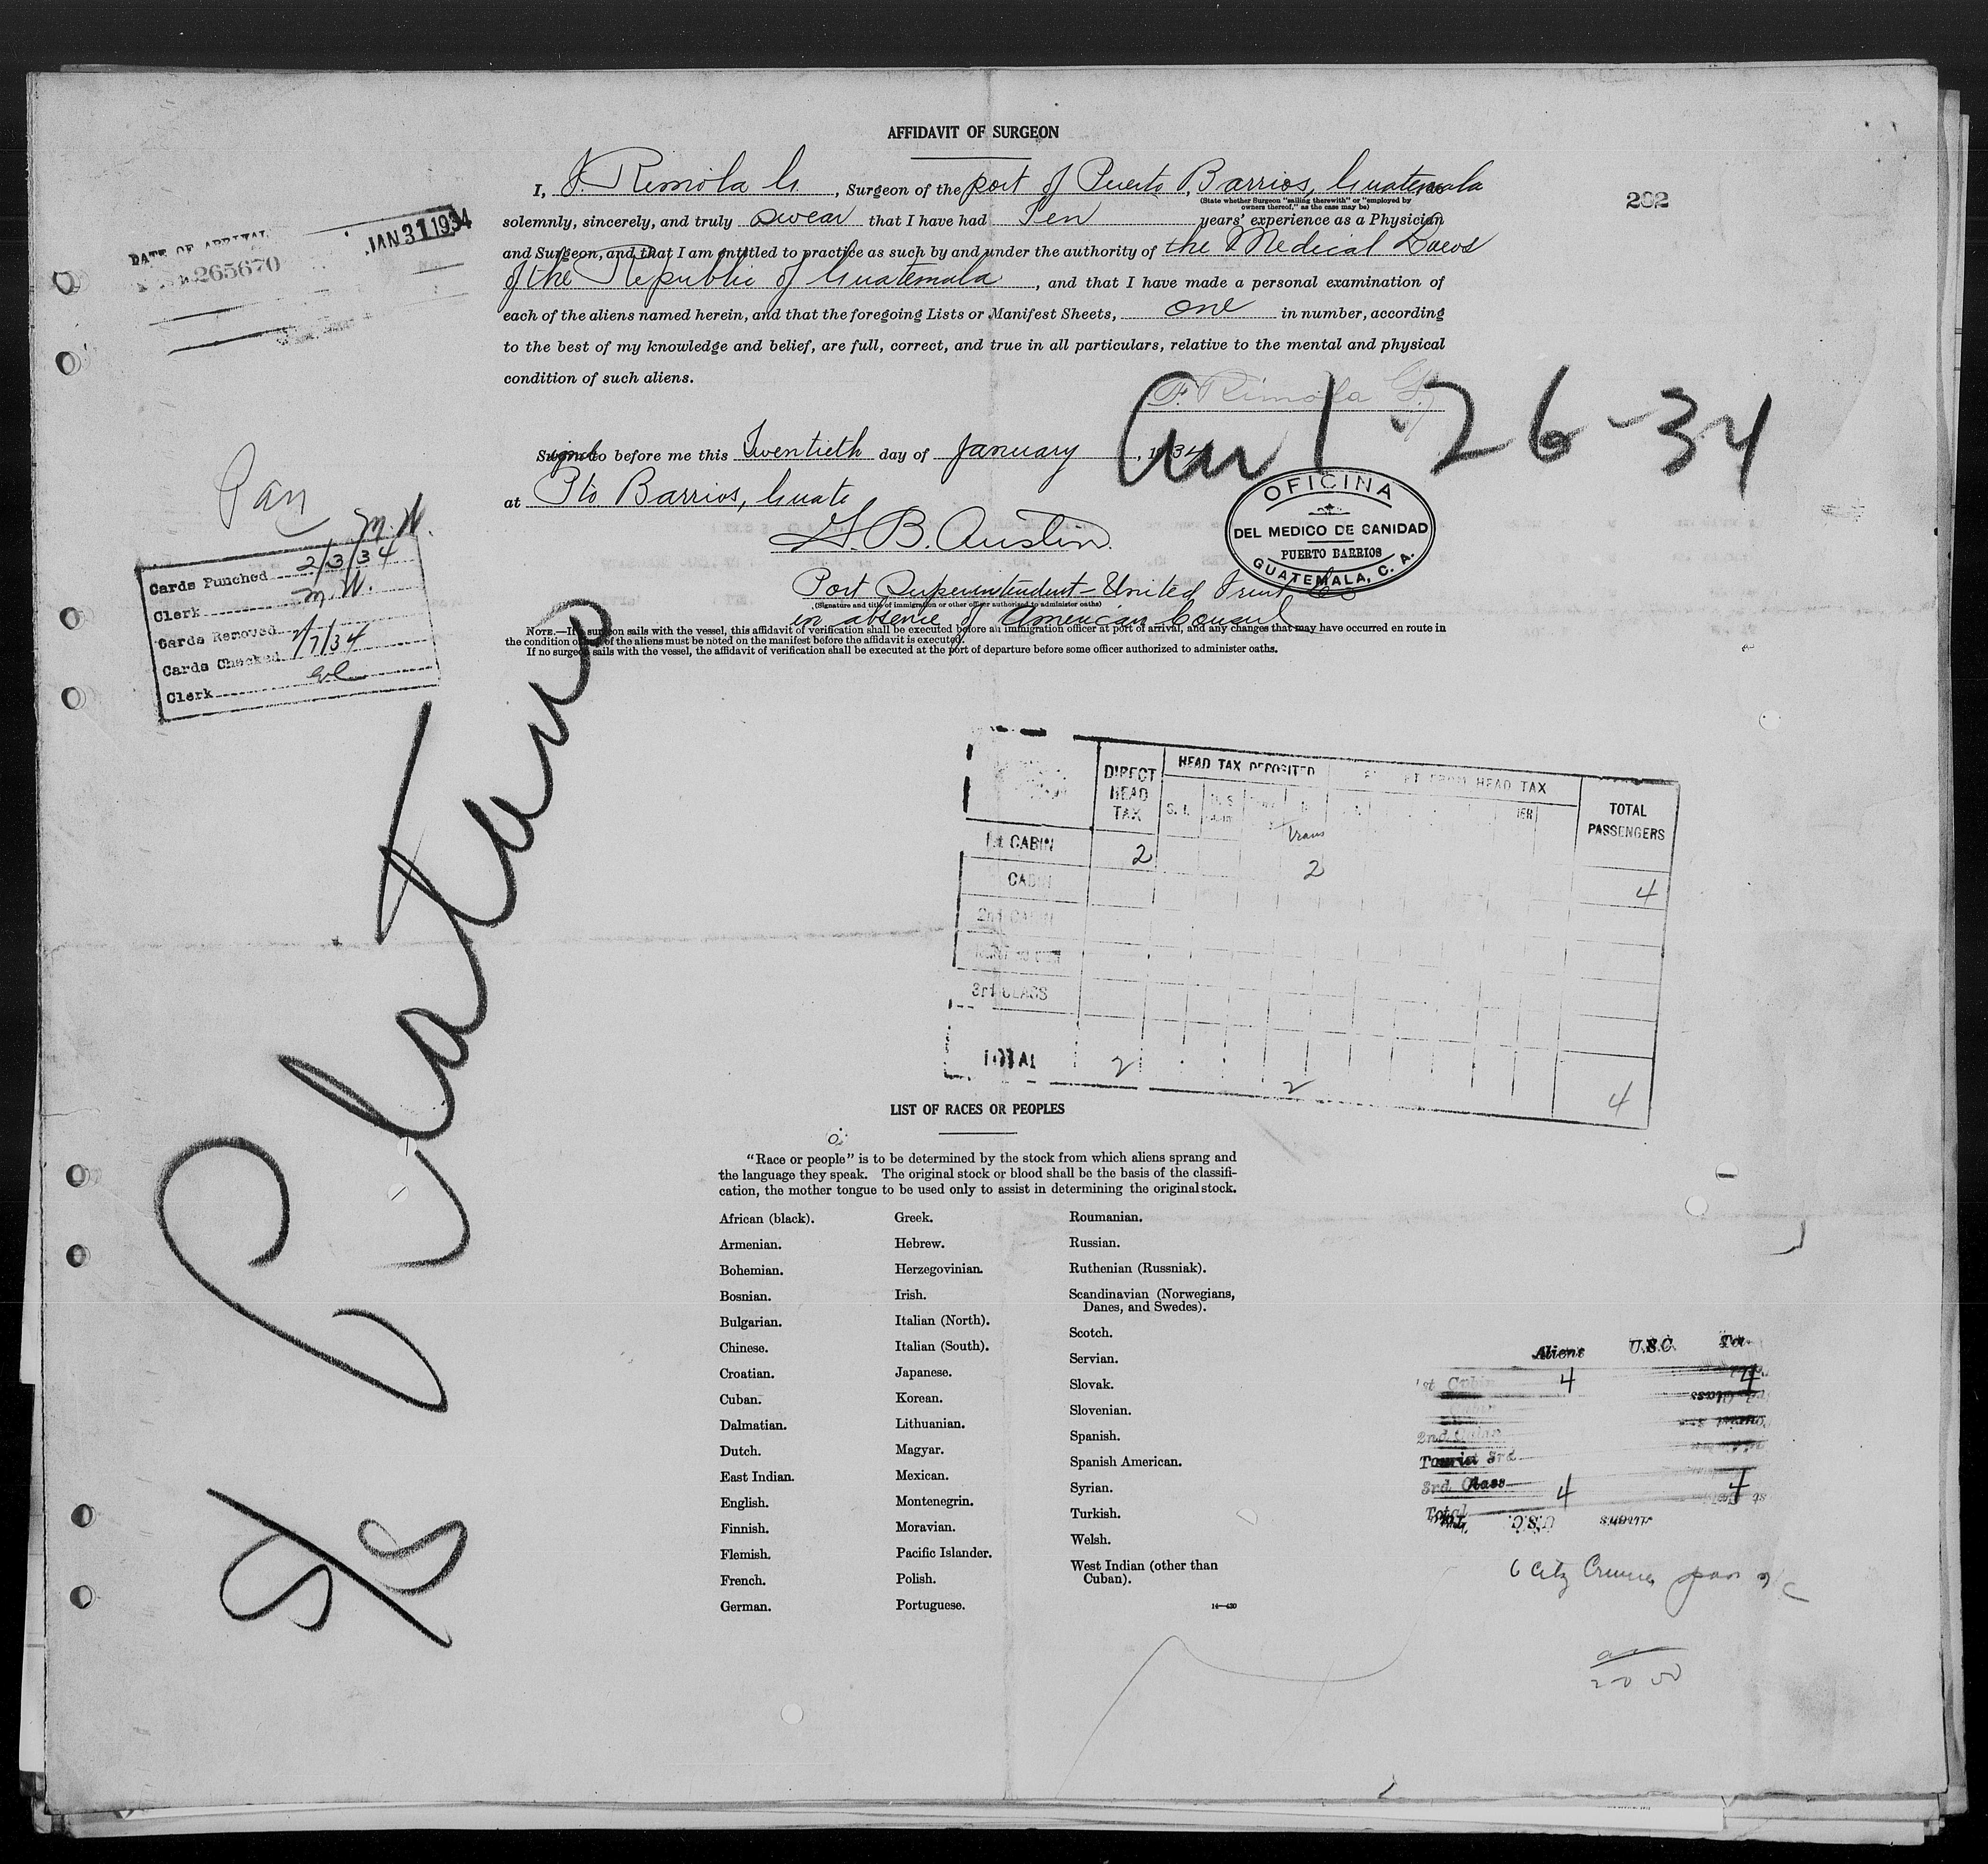 AFFIDAVIT OF SURGEON
I, F. Rimola G. , Surgeon of the port of Puerto Barrios, Guatemala
(State whether Surgeon "sailing therewith" or "employed by
owners thereof," as the case may be)
282
solemnly, sincerely, and truly swear that I have had Ten years' experience as a Physician
and Surgeon, and that I am entitled to practice as such by and under the authority of the Medical Laws
of the Republic of Guatemala , and that I have made a personal examination of
each of the aliens named herein, and that the foregoing Lists or Manifest Sheets, one in number, according
to the best of my knowledge and belief, are full, correct, and true in all particulars, relative to the mental and physical
condition of such aliens.
F. Rimola G.
DATE OF ARRIVAL JAN 31 1934
265670
Arr 1-26-34
Signed to before me this Twentieth day of January , 1934
at Pto Barrios, Guate
G. B. Austin
Port Superintendent - United Fruit Co
(Signature and title of immigration or other officer authorized to administer oaths)
in absence of American Consul
OFICINA
DEL MEDICO DE SANIDAD
PUERTO BARRIOS
GUATEMALA, C. A.
NOTE.—If a surgeon sails with the vessel, this affidavit of verification shall be executed before an immigration officer at port of arrival, and any changes that may have occurred en route in
the condition of any of the aliens must be noted on the manifest before the affidavit is executed.
If no surgeon sails with the vessel, the affidavit of verification shall be executed at the port of departure before some officer authorized to administer oaths.
Pan
M. W.
Cards Punched 2/3/34
Clerk M. W.
Cards Removed
Cards Checked 2/7/34
Clerk
S/S Platano
DIRECT HEAD TAX
HEAD TAX DEPOSITED
FROM HEAD TAX
TOTAL PASSENGERS
S. I.
Trans
1st CABIN 2 2
CABIN 4
2nd CABIN
3rd CLASS
TOTAL 2 2 4
LIST OF RACES OR PEOPLES
"Race or people" is to be determined by the stock from which aliens sprang and
the language they speak. The original stock or blood shall be the basis of the classifi-
cation, the mother tongue to be used only to assist in determining the original stock.
African (black).
Armenian.
Bohemian.
Bosnian.
Bulgarian.
Chinese.
Croatian.
Cuban.
Dalmatian.
Dutch.
East Indian.
English.
Finnish.
Flemish.
French.
German.
Greek.
Hebrew.
Herzegovinian.
Irish.
Italian (North).
Italian (South).
Japanese.
Korean.
Lithuanian.
Magyar.
Mexican.
Montenegrin.
Moravian.
Pacific Islander.
Polish.
Portuguese.
Roumanian.
Russian.
Ruthenian (Russniak).
Scandinavian (Norwegians,
Danes, and Swedes).
Scotch.
Servian.
Slovak.
Slovenian.
Spanish.
Spanish American.
Syrian.
Turkish.
Welsh.
West Indian (other than
Cuban).
14—430
Aliens U.S.C.
1st Cabin 4 4
Cabin
2nd Cabin
Tourist 3rd
3rd Class
Total 4 4
6 City